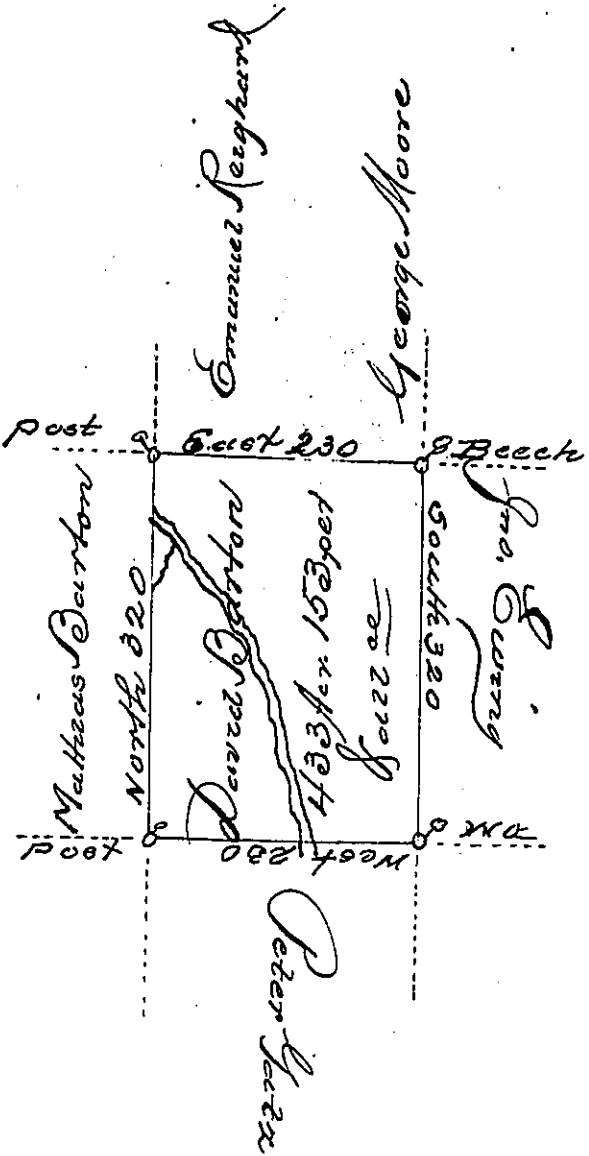 Emanuel Reighart
George Moore
post
East 230
Beech
Mathias Barton
North 320
David Barton
433 Acr 153 per
South 320
Jno. Ewing
post
West 230
Peter Yatx